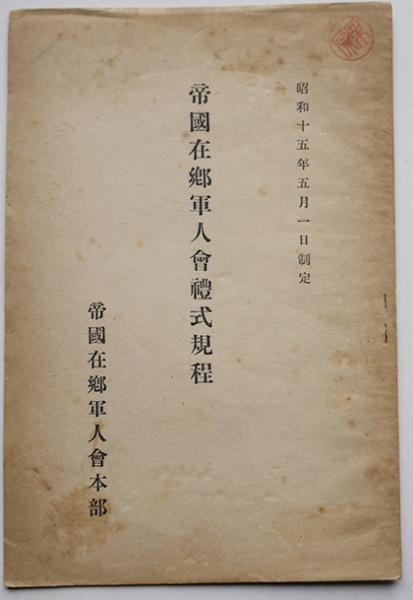 昭和十五年五月一日制定
帝國在鄕軍人會禮式規程
帝國在鄕軍人會本部